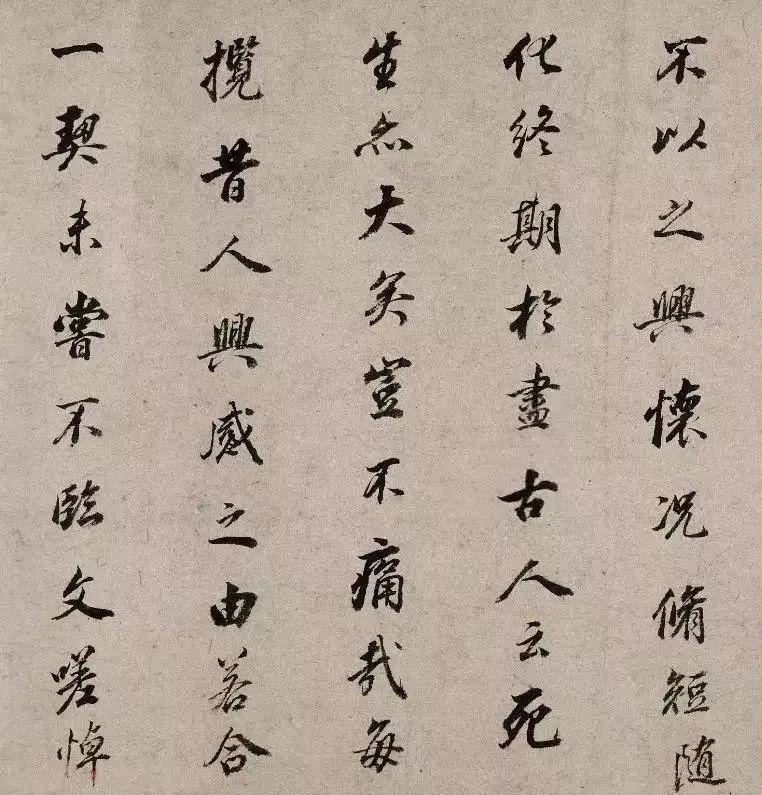 不以之興懷况脩短随
化終期於盡古人云死
生亦大矣豈不痛哉每
攬昔人興感之由若合
一契未嘗不臨文嗟悼